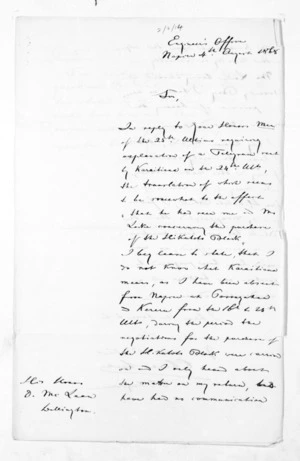 Engineer's Office
Napier 4th August 1868
Sir,
In reply to your Honors Mem
of the 25th Ultimo requiring
explanation of a Telegram sent
by Karaitiana on the 24th Ulto,
the translation of which seems
to be somewhat to the effect
that he had seen me in Mr
Lake concerning the purchase
of the Block,
I beg leave to state, that I
do not know what Karaitiana
means, as I have been absent
from Napier at
& Kereru from the 18th to 24th
Ulto, during the period the
negotiations for the purchase of
the Block were carried
on and I only heard about
the matter on my return,
have had no communication
His Honor
D. McLean
Wellington.